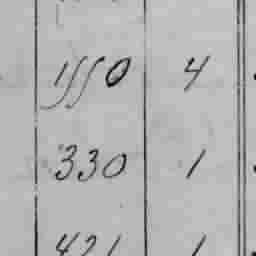 1550 4
330 1
421 1